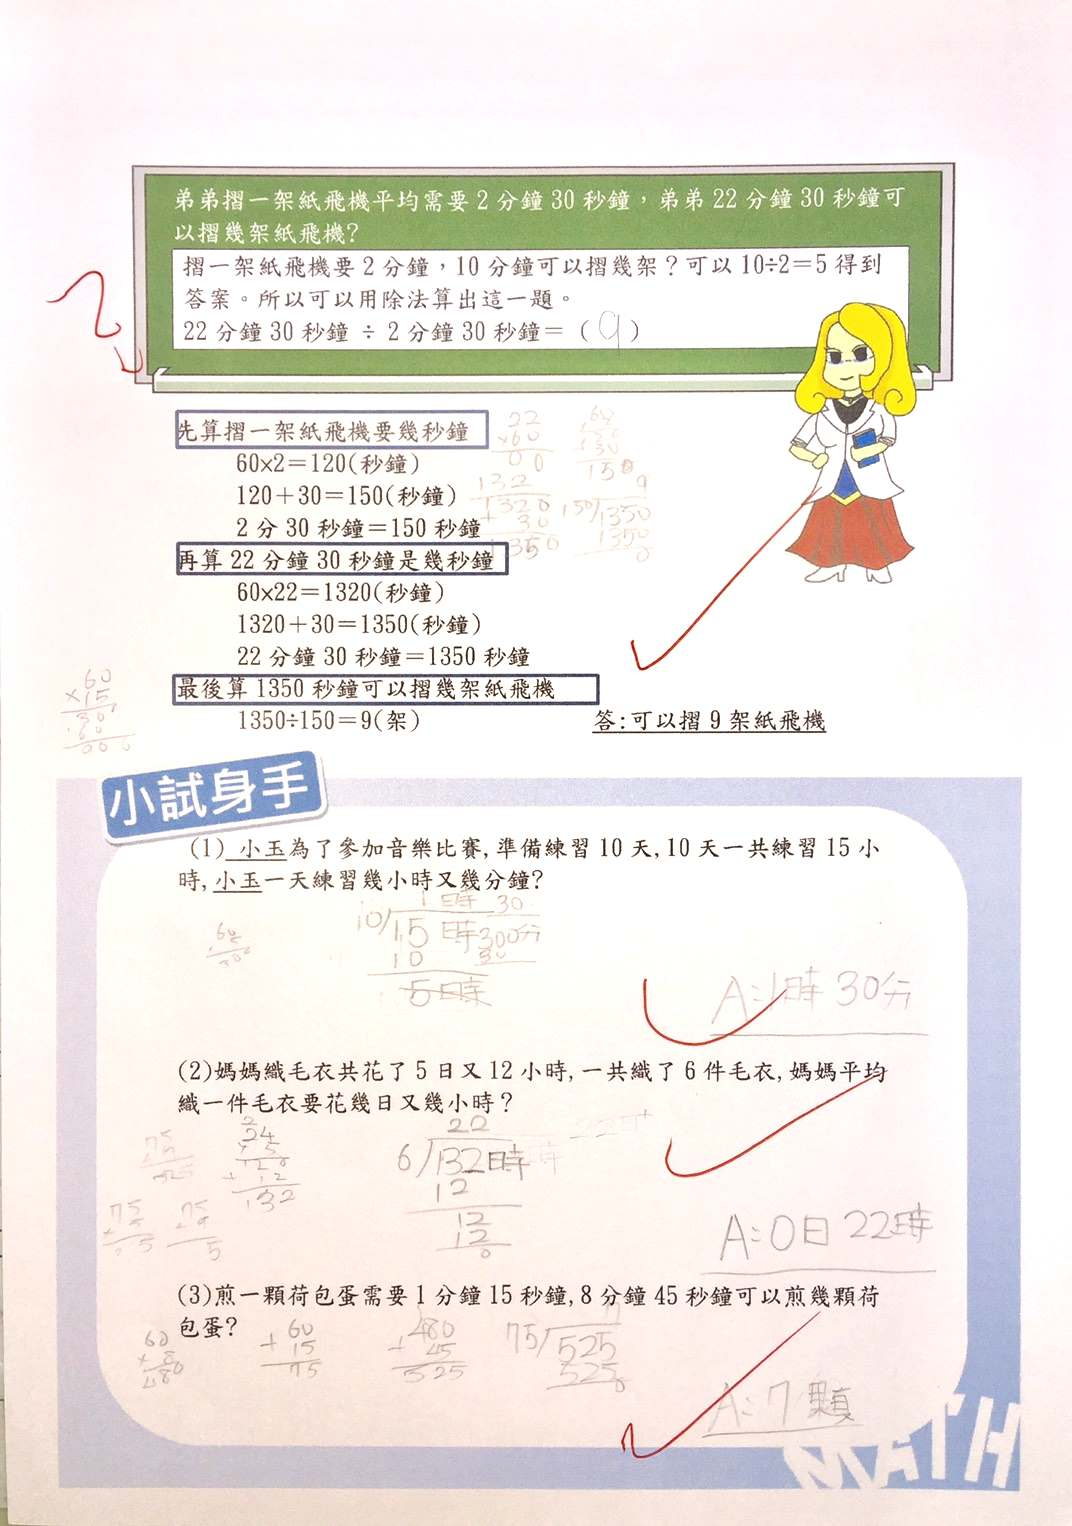 弟弟摺一架紙飛機平均需要 2 分鐘 30 秒鐘，弟弟 22 分鐘 30 秒鐘可
以摺幾架紙飛機?
摺一架紙飛機要 2 分鐘，10 分鐘可以摺幾架？可以 10÷2＝5 得到
答案。所以可以用除法算出這一題。
22 分鐘 30 秒鐘 ÷ 2 分鐘 30 秒鐘＝（9）
先算摺一架紙飛機要幾秒鐘
60×2＝120(秒鐘)
120＋30＝150(秒鐘)
2 分 30 秒鐘＝150 秒鐘
22
×60
00
132
1320
+ 30
1350
9
150/1350
1350
0
再算 22 分鐘 30 秒鐘是幾秒鐘
60×22＝1320(秒鐘)
1320＋30＝1350(秒鐘)
22 分鐘 30 秒鐘＝1350 秒鐘
最後算 1350 秒鐘可以摺幾架紙飛機
1350÷150＝9(架)
答:可以摺 9 架紙飛機
60
×15
小試身手
(1) 小玉為了參加音樂比賽,準備練習 10 天,10 天一共練習 15 小
時,小玉一天練習幾小時又幾分鐘?
1時 30
10/15時300分
10 30
5時
A:1時30分
(2)媽媽織毛衣共花了 5 日又 12 小時,一共織了 6 件毛衣,媽媽平均
織一件毛衣要花幾日又幾小時？
24
× 5
+ 12
132
22
6/132時
12
12
12
0
A:0日22時
(3)煎一顆荷包蛋需要 1 分鐘 15 秒鐘,8 分鐘 45 秒鐘可以煎幾顆荷
包蛋?
60
× 8
480
60
+ 15
75
480
+ 45
525
7
75/525
525
0
A:7顆
MATH